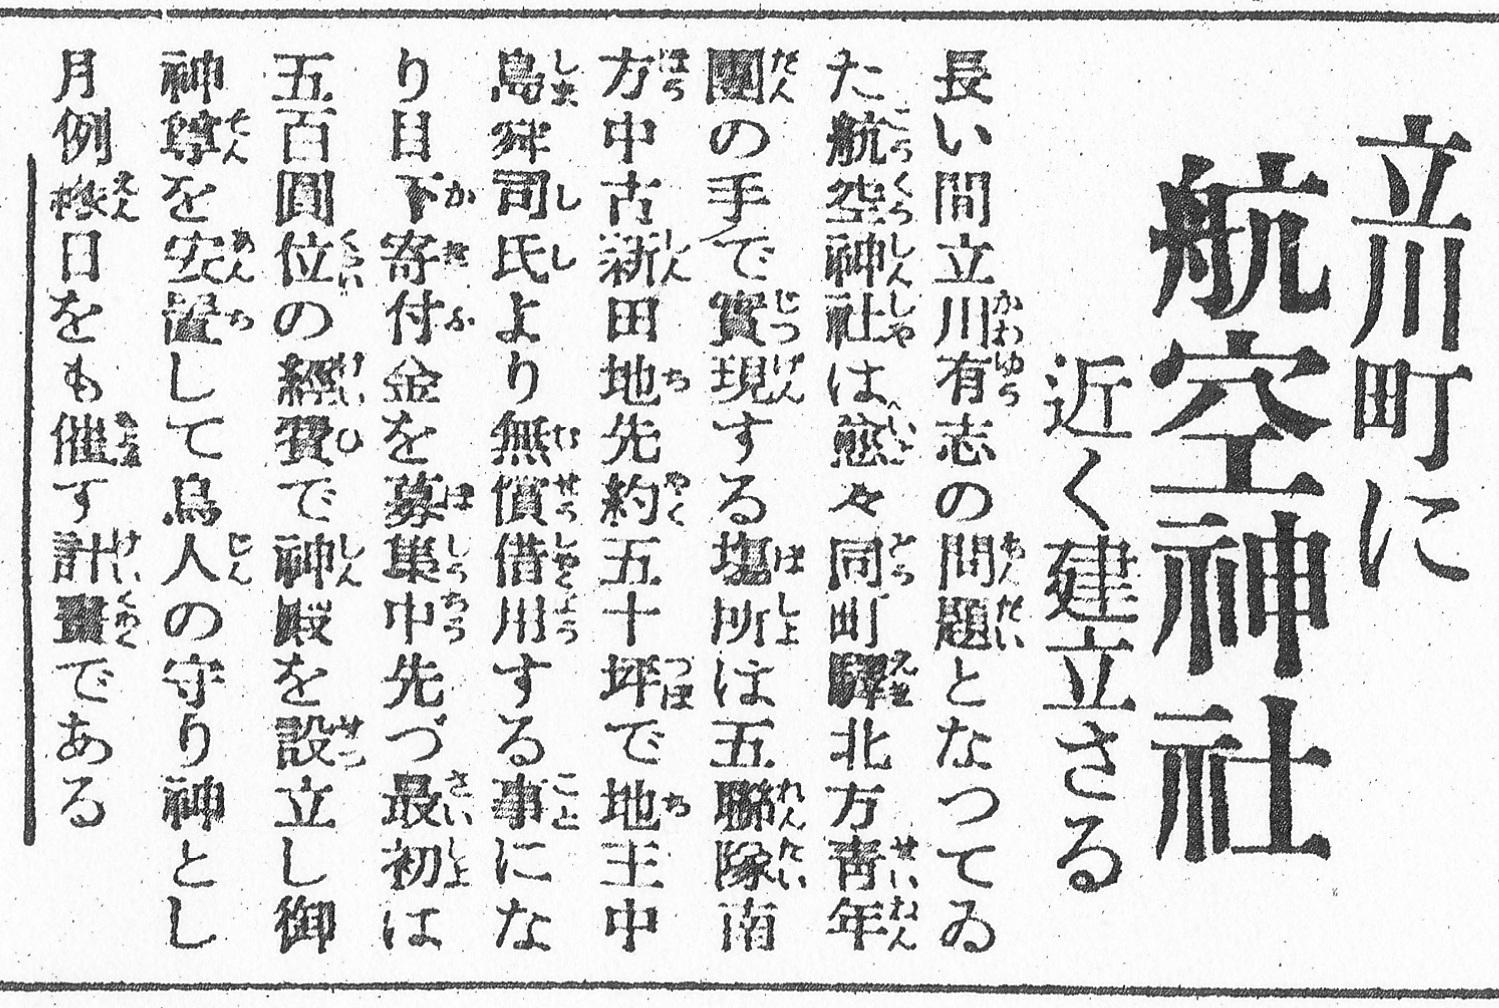 立川町に
航空神社
近く建立さる
長い間立川有志の問題となつてゐ
た航空神社は愈々同町驛北方青年
團の手で實現する塲所は五聯隊南
方中古新田地先約五十坪で地主中
島舜司氏より無償借用する事にな
り目下寄付金を募集中先づ最初は
五百圓位の經費で神殿を設立し御
神尊を安置して鳥人の守り神とし
月例縁日をも催す計畫である